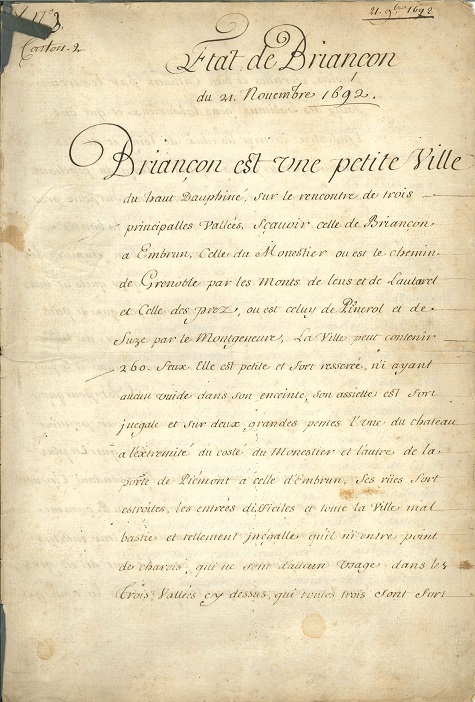 N.º 3.
Carton. 2
21. 9.bre 1692
Etat de Briançon
du 21. Nouembre 1692.
Briançon est vne petite Ville
du haut Dauphiné, sur le rencontre de trois
principalles Vallées, Sçauoir celle de Briançon
a Embrun, Celle du Monestier ou est le chemin
de Grenoble par les Monts de lens et de Lautaret
et Celle des prez, ou est celuy de Pinerol et de
Suze par le Montgeneure, La Ville peut contenir
260. feux Elle est petite et fort resserée, n'i ayant
aucun vuide dans son enceinte, son assiette est fort
jnegale et sur deux grandes pentes l'vne du chateau
a léxtremité du costé du Monestier et lautre de la
porte de Piémont à celle d'embrun, Ses rües sort
estroites, les entrées difficiles et toute la Ville mal
bastie et tellement jnégalle qu'il n'i entre point
de charois, qui ne sont daucun vsage dans les
trois Vallées cy dessus, qui toutes trois sont fort